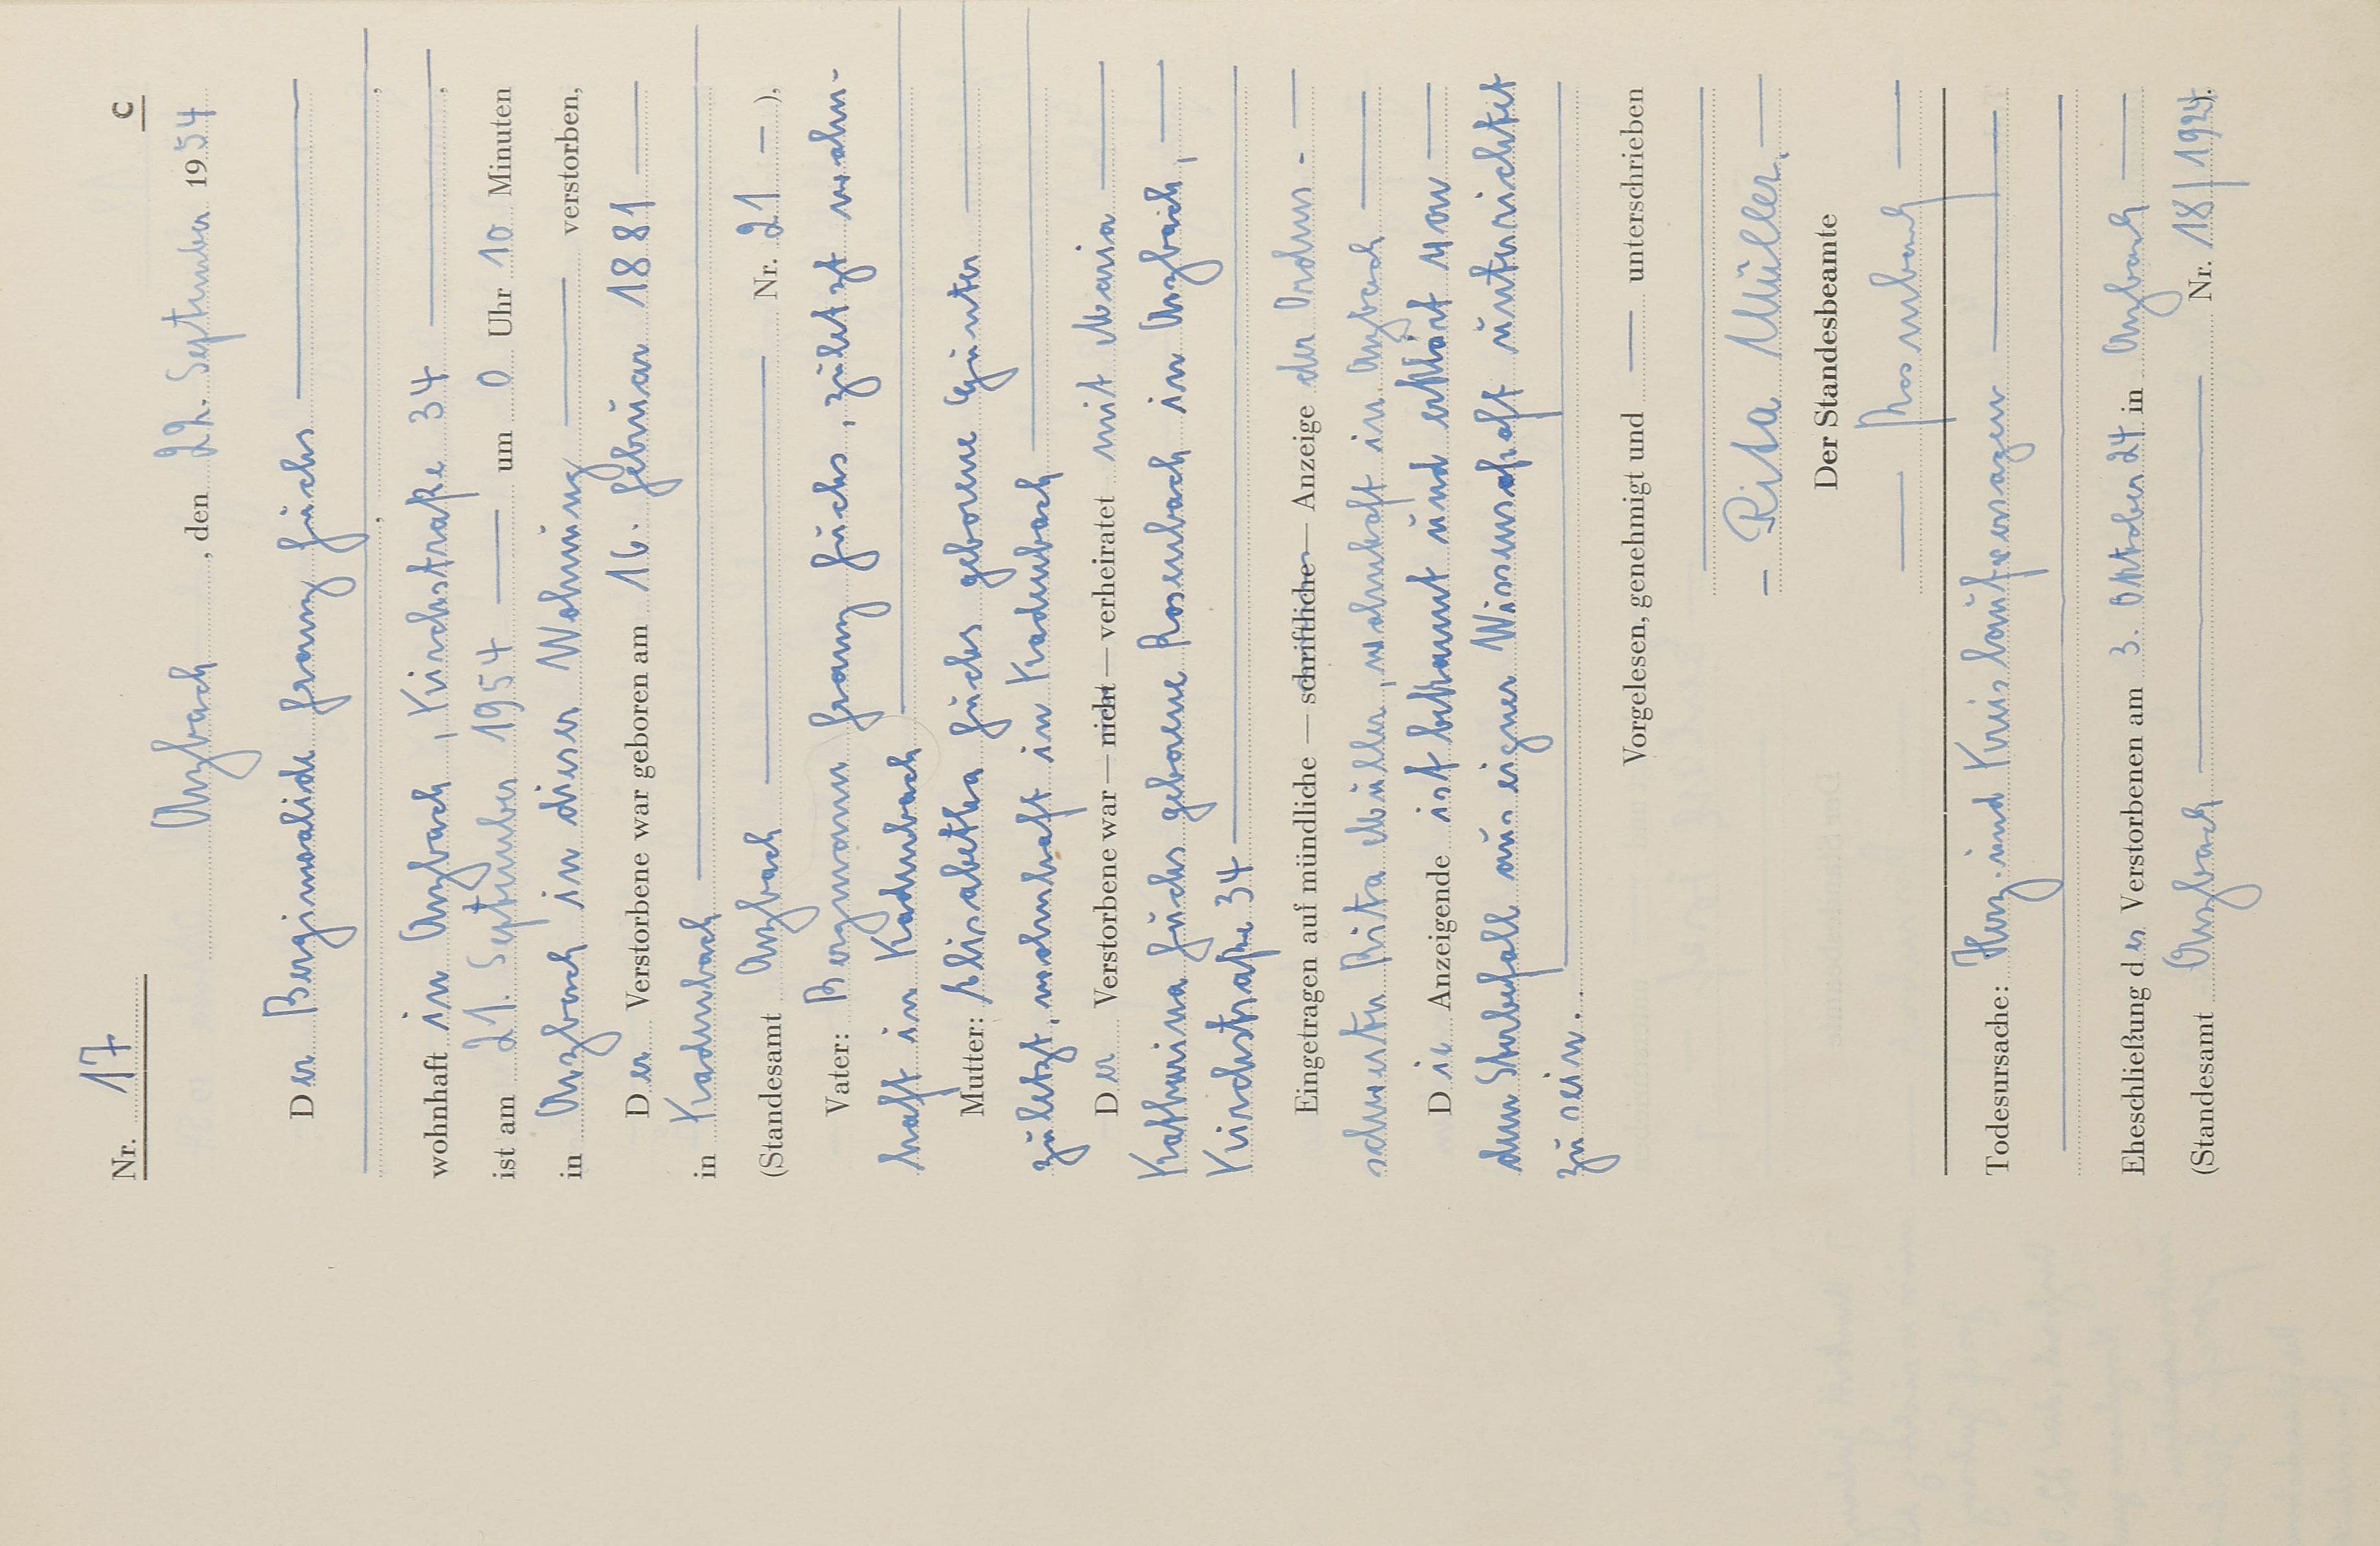 Nr. 17 C
Arzbach, den 22. September 1954
Der Berginvalide Franz Fuchs
wohnhaft in Arzbach, Kirchstraße 34
ist am 21. September 1954 um 0 Uhr 10 Minuten
in Arzbach in dieser Wohnung verstorben,
Der Verstorbene war geboren am 16. Februar 1881
in Kadenbach
(Standesamt Arzbach Nr. 21 — ),
Vater: Bergmann Franz Fuchs, zuletzt wohn-
haft in Kadenbach
Mutter: Elisabetha Fuchs geborene Günter
zuletzt wohnhaft in Kadenbach
Der Verstorbene war — nicht — verheiratet mit Maria
Katharina Fuchs geborene Rosenbach in Arzbach,
Kirchstraße 34
Eingetragen auf mündliche — schriftliche — Anzeige der Ordens-
schwester Rita Müller, wohnhaft in Arzbach
Die Anzeigende ist bekannt und erklärt von
dem Sterbefall aus eigner Wissenschaft unterrichtet
zu sein.
Vorgelesen, genehmigt und — unterschrieben
— Rita Müller. —
Der Standesbeamte
— Rosenbach —
Todesursache: Herz- und Kreislaufversagen
Eheschließung des Verstorbenen am 3. Oktober 24 in Arzbach
(Standesamt Arzbach Nr. 18/1924).